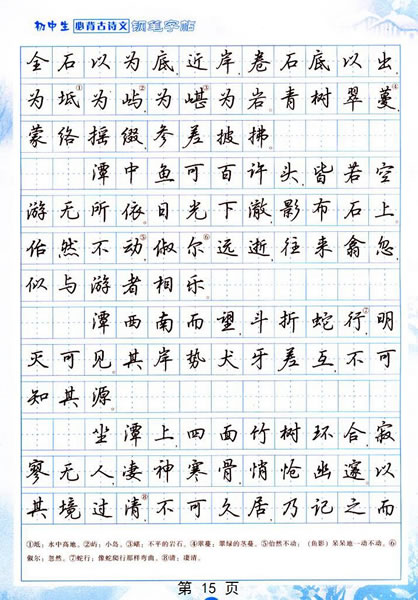 初中生 必背古诗文 钢笔字帖
全石以为底，近岸，卷石底以出，
为坻①，为屿②，为嵁③，为岩。青树翠蔓④，
蒙络摇缀，参差披拂。
潭中鱼可百许头，皆若空
游无所依。日光下澈，影布石上，
佁然不动⑤，俶尔⑥远逝，往来翕忽，
似与游者相乐。
潭西南而望，斗折蛇行⑦，明
灭可见。其岸势犬牙差互，不可
知其源。
坐潭上，四面竹树环合，寂
寥无人，凄神寒骨，悄怆幽邃。以
其境过清⑧，不可久居，乃记之而
①坻：水中高地。②屿：小岛。③嵁：不平的岩石。④翠蔓：翠绿的茎蔓。⑤佁然不动：（鱼影）呆呆地一动不动。⑥
俶尔：忽然。⑦蛇行：像蛇爬行那样弯曲。⑧清：凄清。
第 15 页